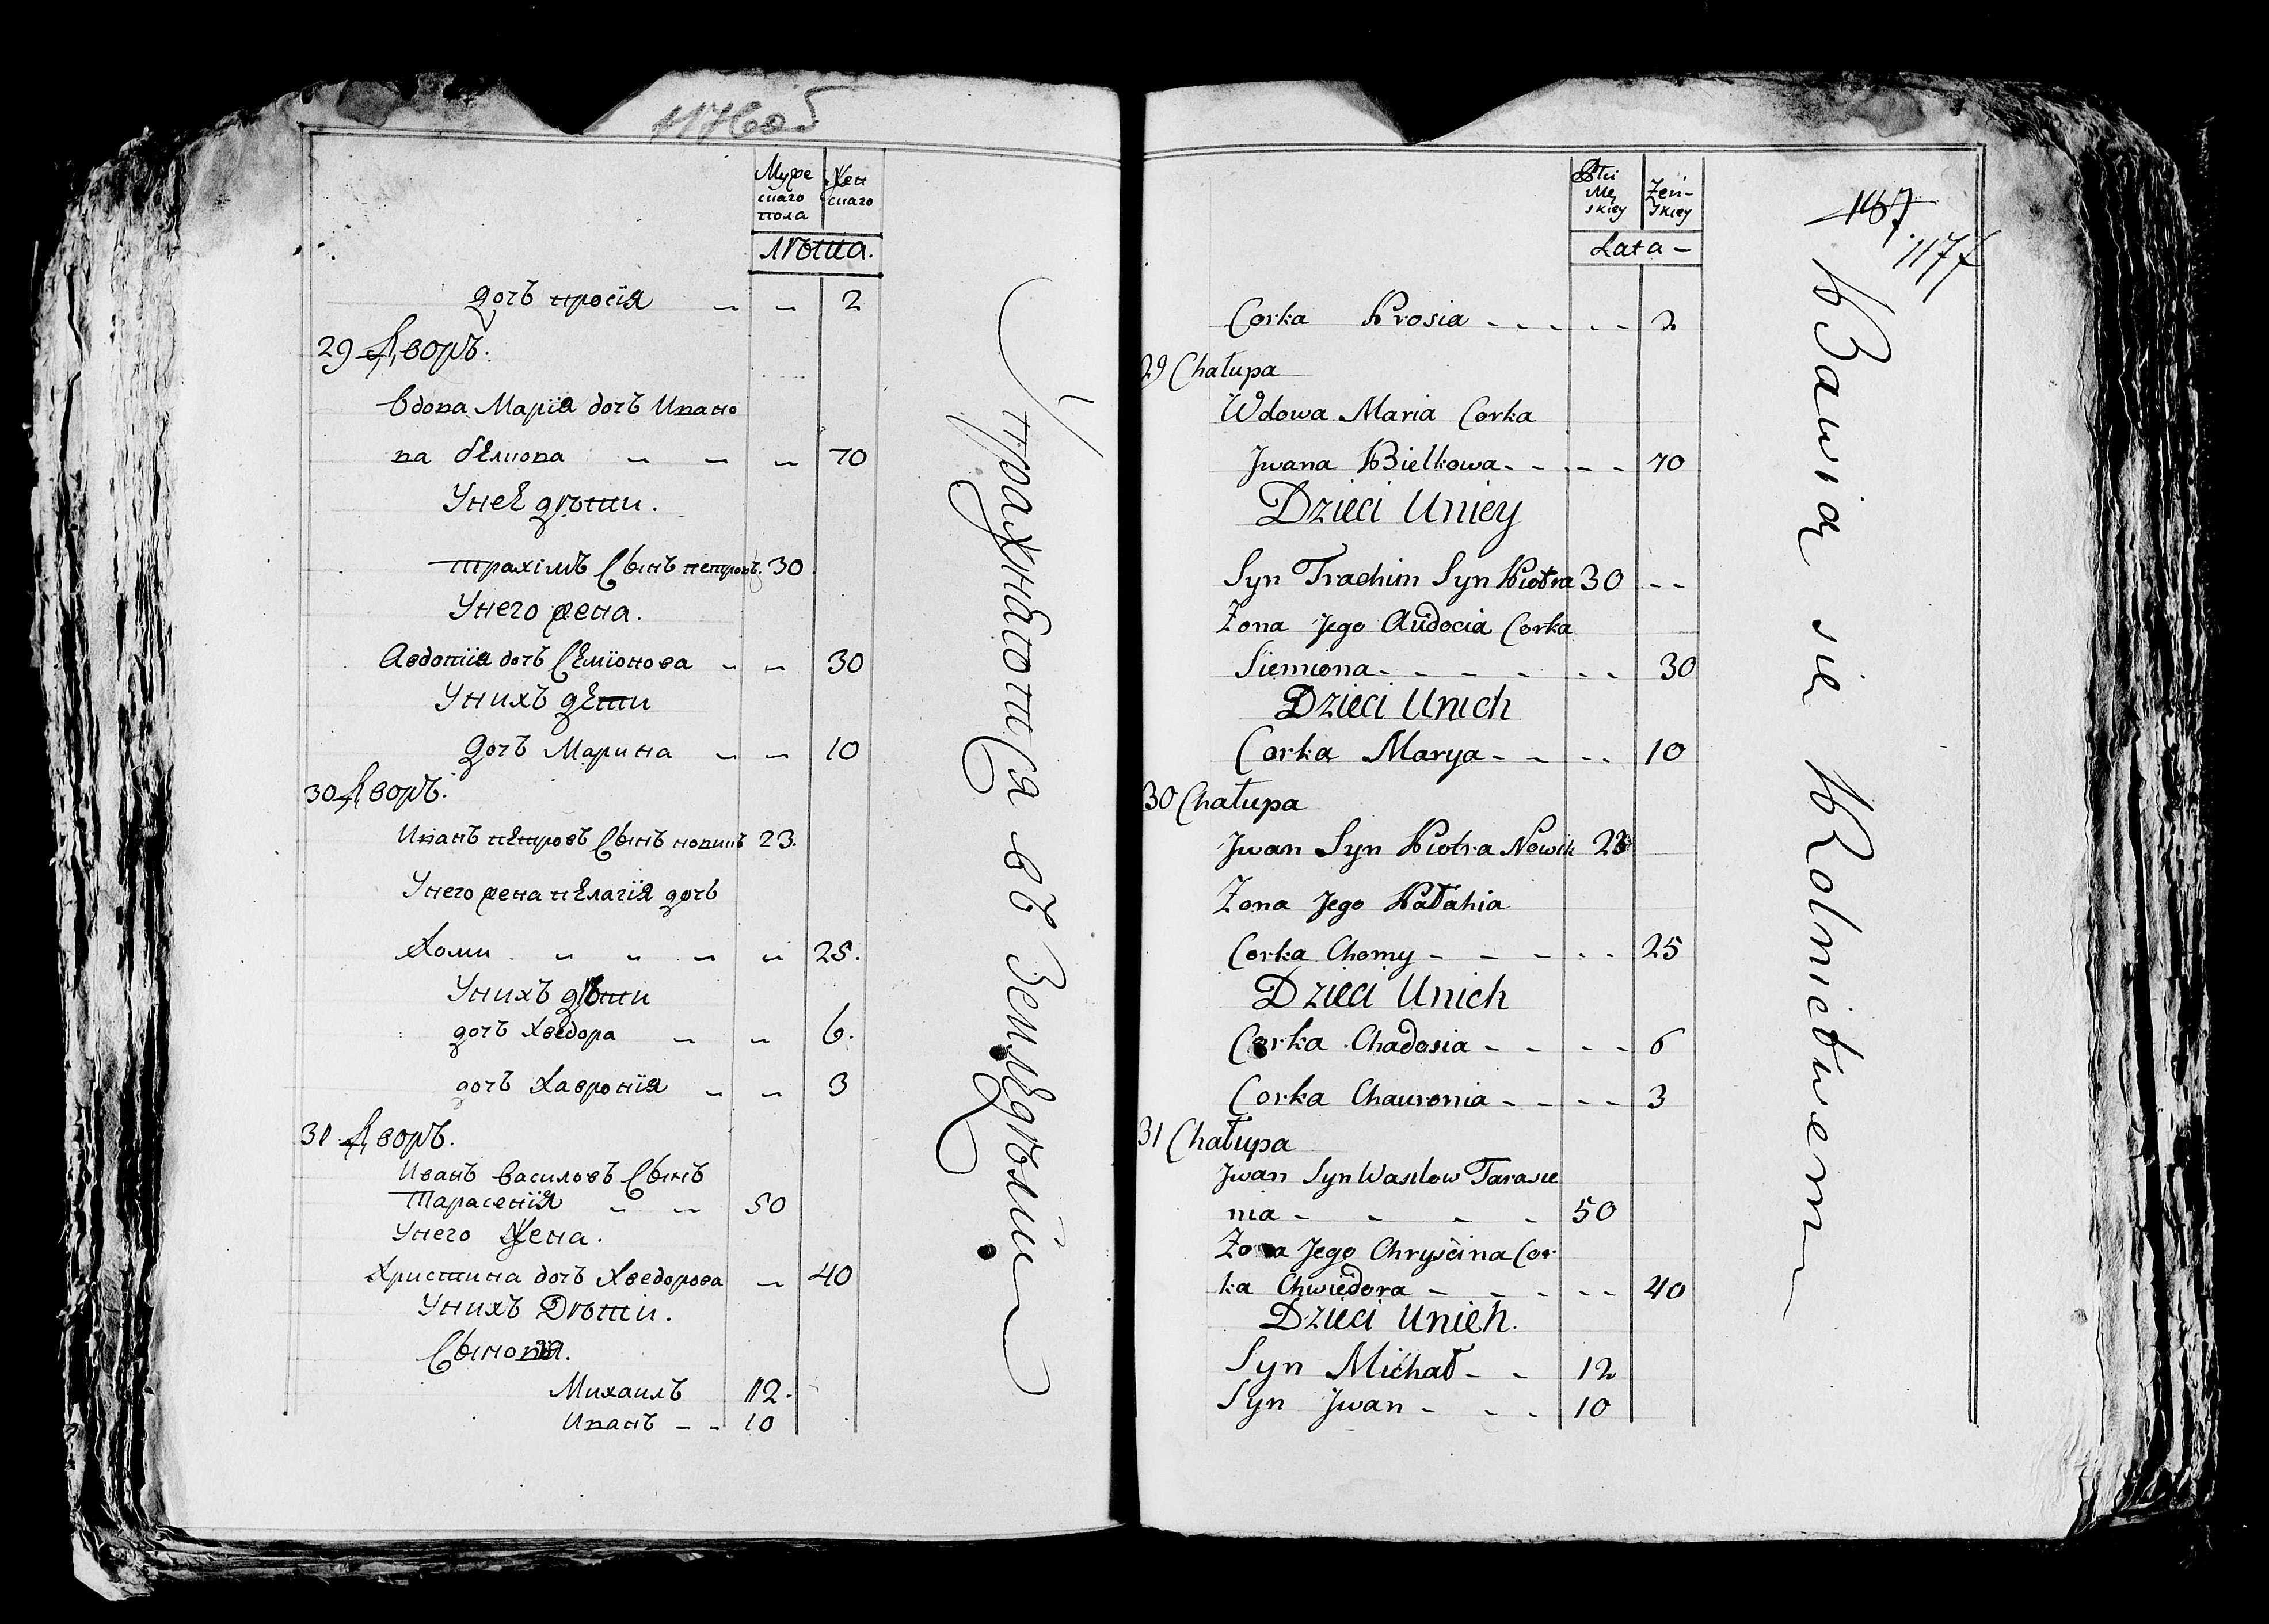 1176 об
Муже Жен
скаго скаго
пола
лѣта.
дочь просія „ „ 2
29 Дворъ.
вдова Марія дочь Ивано
ва бѣлкова „ „ „ 70
Унеѣ дѣти.
трахімъ Сынъ петровъ. 30
Унего жена.
Авдотія дочь Сѣміонова „ „ 30
Унихъ дѣти
дочь Марина „ „ 10
30 Дворъ.
Иванъ пѣтровъ Сынъ новикъ 23.
Унего жена пѣлагія дочь
Хоми „ „ „ „ 25.
Унихъ дѣти
дочь Хведора „ „ 6.
дочь Хавронія „ „ 3
31 Дворъ.
Иванъ василовъ Сынъ
Тарасенія „ „ 50
Унего Жена.
Христина дочь Хведорова „ 40
Унихъ Дѣти.
Сыновя.
Михаилъ 12.
Иванъ – „ 10
Упражнаютса въ Земледѣліи
167
1177
Płci
Mę Żeń-
skiey skiey
Lata –
Corka Prosia - - - - - 2
29 Chałupa
Wdowa Maria Corka
Jwana Bielkowa - - - - 70
Dzieci Uniey
Syn Trachim Syn Piotra 30 - -
Zona Jego Audocia Corka
Siemiona - - - - - - 30
Dzieci Unich
Corka Marya - - - - 10
30 Chałupa
Jwan Syn Piotra Nowik 23
Zona Jego Pałahia
Corka Chomy - - - - - 25
Dzieci Unich
Corka Chadosia - - - - 6
Corka Chauronia - - - - 3
31 Chałupa
Jwan Syn Wasilow Tarasie
nia - - - - 50
Zona Jego Chryścina Cor-
ka Chwiedora - - - - - 40
Dzieci Unich.
Syn Michał - - 12
Syn Jwan - - - 10
Bawią się Rolnictwem